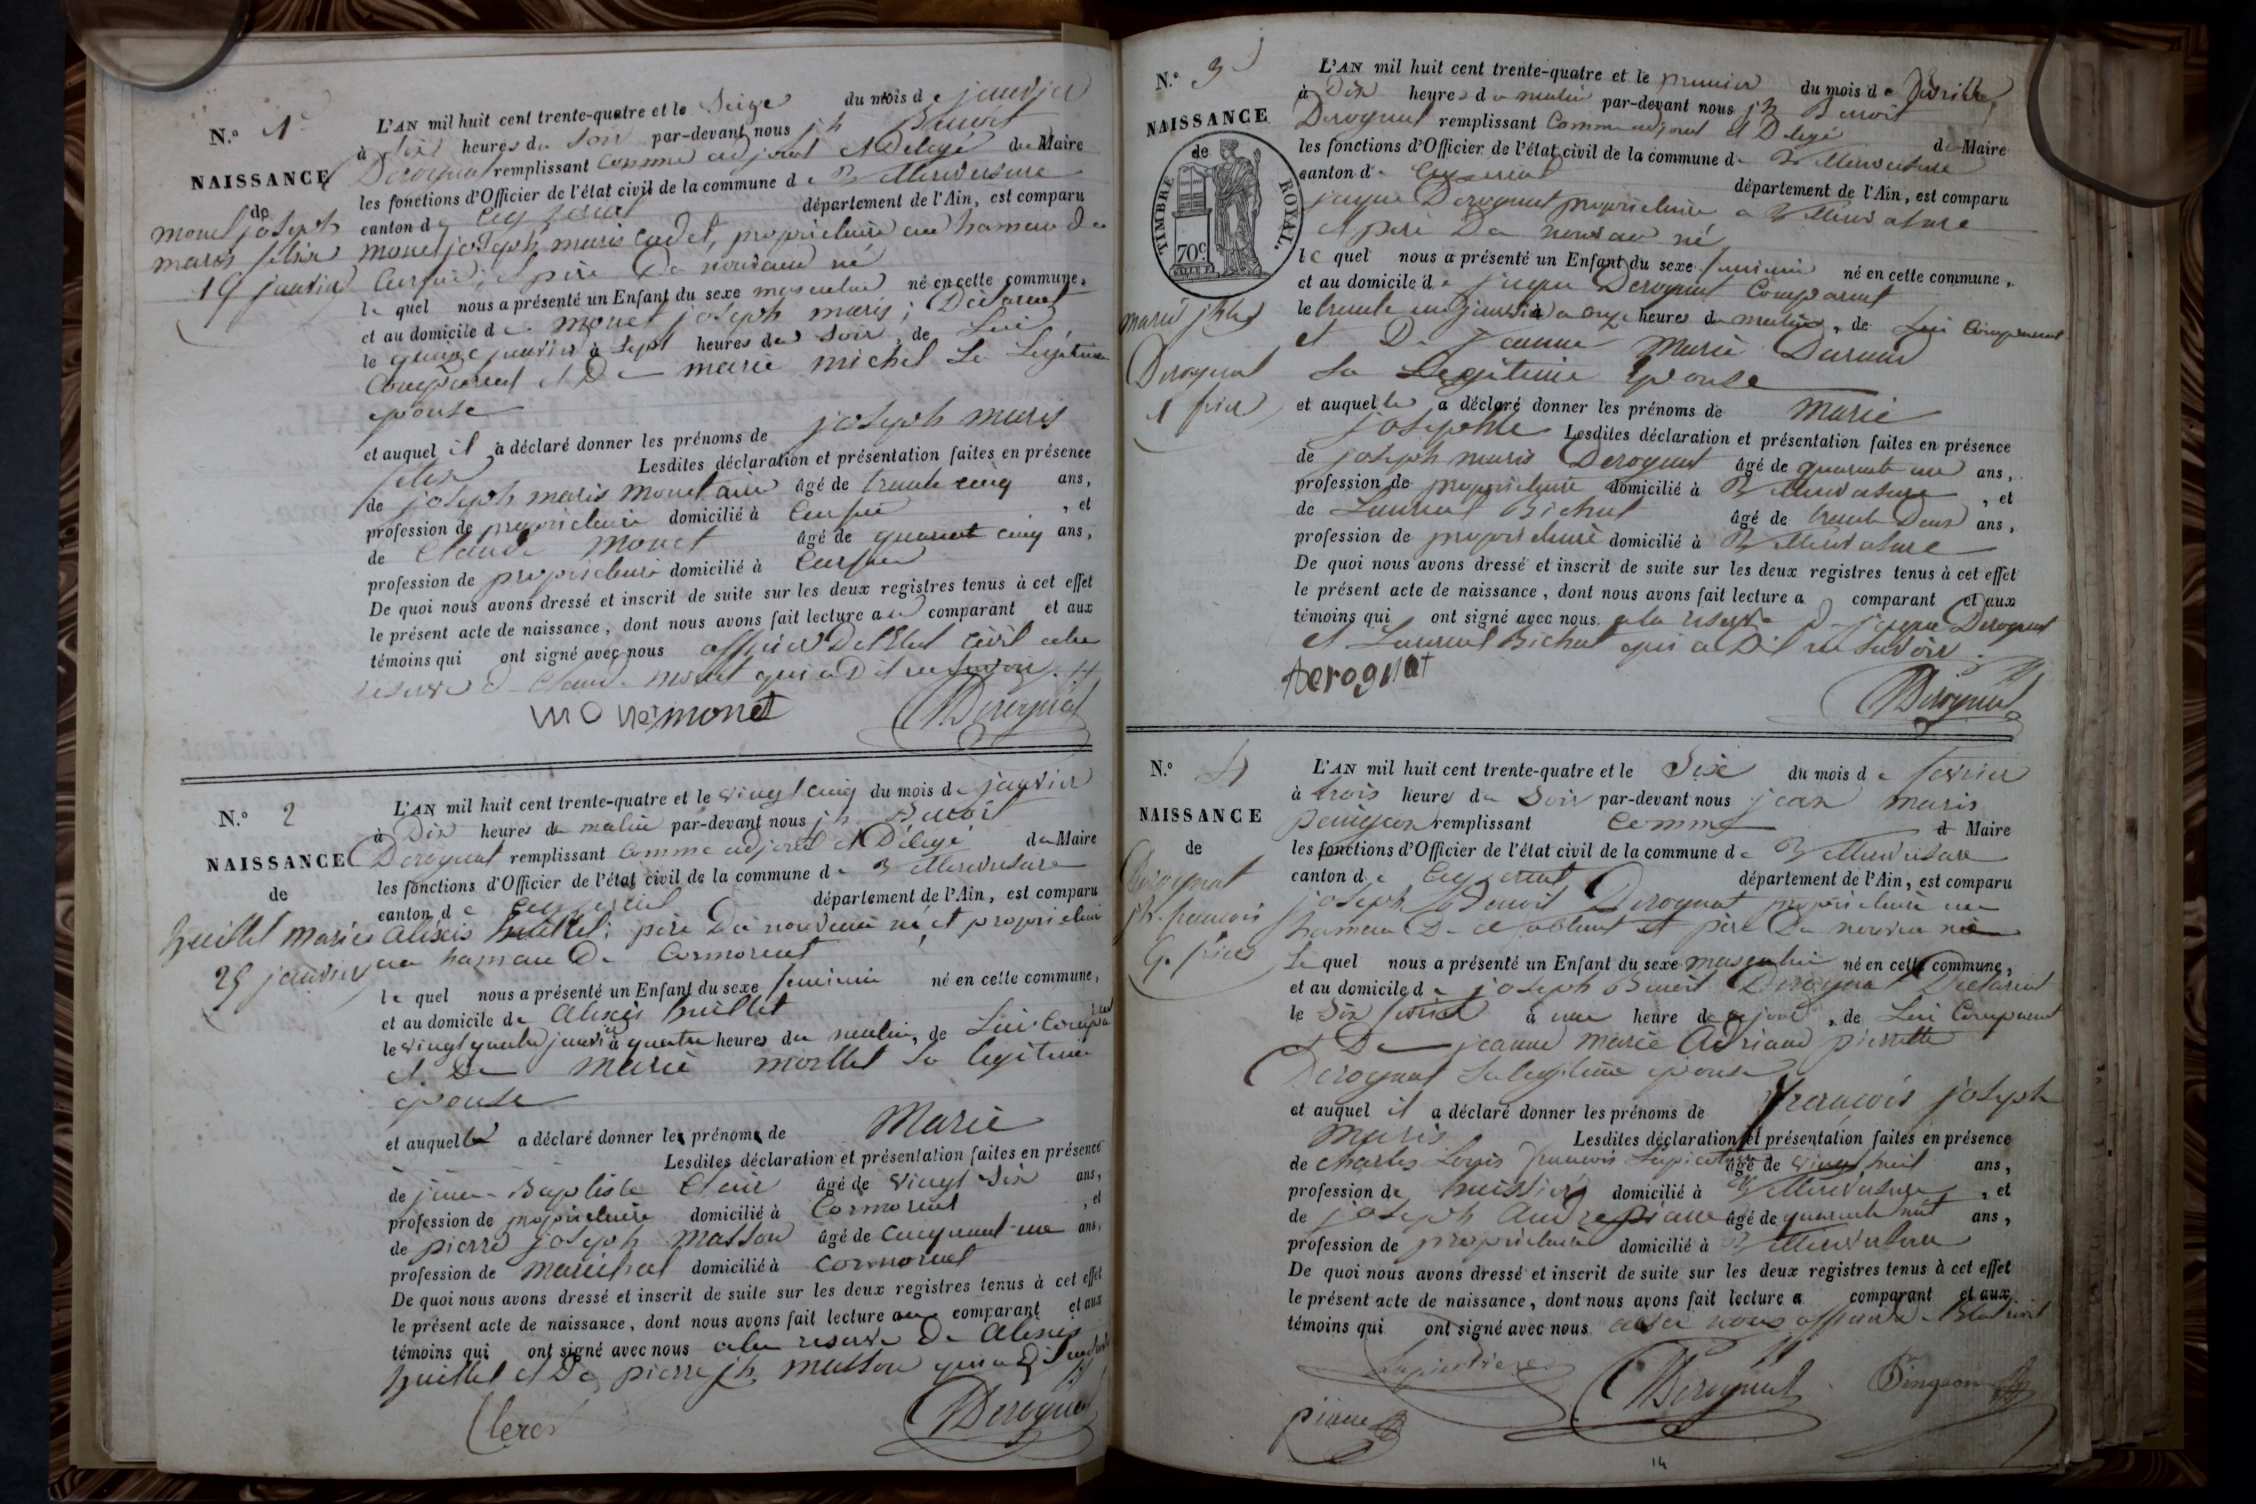 N.° 1
NAISSANCE
de
monet joseph
maris félix
15 janvier
L'AN mil huit cent trente-quatre et le Seize du mois de janvier
à Six heures du Soir par-devant nous jh Benoit
Derognat remplissant comme adjoint et Délégé du Maire
les fonctions d'Officier de l'état civil de la commune de Villereversure
canton de Ceyzeriat département de l'Ain, est comparu
monet joseph maris cadet, propriétaire au hameau de
et père du nouveau né
le quel nous a présenté un Enfant du sexe masculin né en cette commune,
et au domicile de monet joseph maris, Déclarant
le quinze janvier à Sept heures du Soir, de Lui
Comparant et De marie michel Sa Légitime
epouse
et auquel il a déclaré donner les prénoms de joseph maris
félix Lesdites déclaration et présentation faites en présence
de joseph maris monet ainé âgé de trente cinq ans,
profession de propriétaire domicilié à , et
de Claude monet âgé de quarente cinq ans,
profession de propriétaire domicilié à
De quoi nous avons dressé et inscrit de suite sur les deux registres tenus à cet effet
le présent acte de naissance, dont nous avons fait lecture au comparant et aux
témoins qui ont signé avec nous officier De l'Etat civil a la
reserve de Claude monet qui a Dit ne Savoir.
monet monet Derognat
N.° 2
NAISSANCE
de
huillet marie
25 janvier
L'AN mil huit cent trente-quatre et le vingt cinq du mois de janvier
à Dix heures du matin par-devant nous jh Benoit
Derognat remplissant comme adjoint et Délégé du Maire
les fonctions d'Officier de l'état civil de la commune de Villereversure
canton de Ceyzeriat département de l'Ain, est comparu
alexis huillet, père du nouveau né et propriétaire
au hameau De Cormorent
le quel nous a présenté un Enfant du sexe feminin né en cette commune,
et au domicile de alexis huillet
le vingt quatre janvier à quatre heures du matin, de Lui Comparant
et De marie morllet Sa legitime
epouse
et auquel le a déclaré donner les prénoms de Marie
Lesdites déclaration et présentation faites en présence
de jean Baptiste Clair âgé de vingt Six ans,
profession de propriétaire domicilié à Cormorent , et
de pierre joseph masson âgé de cinquante un ans,
profession de maréchal domicilié à cormorent
De quoi nous avons dressé et inscrit de suite sur les deux registres tenus à cet effet
le présent acte de naissance, dont nous avons fait lecture au comparant et aux
témoins qui ont signé avec nous a la reserve De alexis
huillet et De pierre jh masson qui a Dit
Clerc Derognat
N.° 3
NAISSANCE
de
TIMBRE ROYAL.
70c
marie jphte
Derognat
1 fvier
L'AN mil huit cent trente-quatre et le premier du mois de fevrier
à Dix heures du matin par-devant nous jh Benoit
Derognat remplissant Comme adjoint et Délégé du Maire
les fonctions d'Officier de l'état civil de la commune de Villereversure
canton de Ceyzeriat département de l'Ain, est comparu
jaque Derognat propriétaire a Villereversure
et père Du nouveau né
le quel nous a présenté un Enfant du sexe feminin né en cette commune,
et au domicile de jaque Derognat Comparant
le trente un janvier à onze heures du matin, de Lui Comparant
et De Jeanne Marie
Sa Legitime Epouse
et auquel le a déclaré donner les prénoms de Marie
josephte Lesdites déclaration et présentation faites en présence
de joseph maris Derognat âgé de quarante un ans,
profession de propriétaire domicilié à Villereversure , et
de Laurent Bichat âgé de trente Deux ans,
profession de propriétaire domicilié à Villereversure
De quoi nous avons dressé et inscrit de suite sur les deux registres tenus à cet effet
le présent acte de naissance, dont nous avons fait lecture a comparant et aux
témoins qui ont signé avec nous a la reserve De jaque Derognat
et Laurent Bichat qui a Dit ne Savoir.
Derognat Derognat
N.° 4
NAISSANCE
de
Derognat
jh. francois
6. fvier
L'AN mil huit cent trente-quatre et le Six du mois de fevrier
à trois heures du Soir par-devant nous jean maris
peingeon remplissant Comme d Maire
les fonctions d'Officier de l'état civil de la commune de Villereversure
canton de Ceyzeriat département de l'Ain, est comparu
joseph Benoit Derognat propriétaire au
hameau De et père Du nouveau né
Le quel nous a présenté un Enfant du sexe masculin né en cette commune,
et au domicile de joseph Benoit Derognat Déclarant
le Six fevrier à une heure de ce jour, de Lui Comparant
et De jeanne marie Adriane pierrette
Derognat Sa legitime epouse
et auquel il a déclaré donner les prénoms de francois joseph
Maris Lesdites déclaration et présentation faites en présence
de charles Louis francois âgé de vingt huit ans,
profession de huissier domicilié à Villereversure , et
de joseph andre piane âgé de quarante huit ans,
profession de propriétaire domicilié à Villereversure
De quoi nous avons dressé et inscrit de suite sur les deux registres tenus à cet effet
le présent acte de naissance, dont nous avons fait lecture a comparant et aux
témoins qui ont signé avec nous officier de l'Etat civil
Derognat Pingeon
piane
14